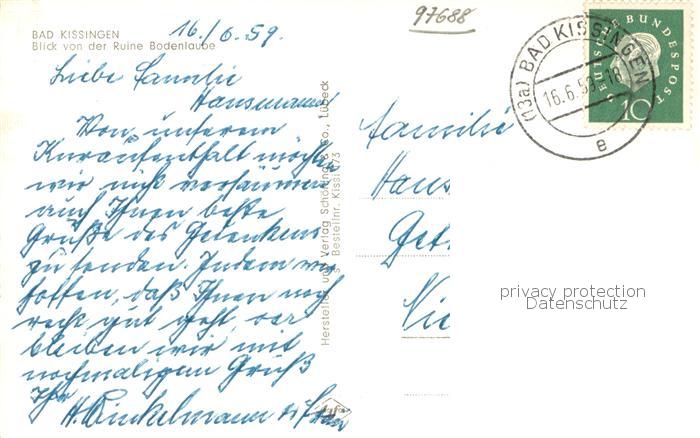 BAD KISSINGEN
Blick von der Ruine Bodenlaube
16./6.59.
97688
Liebe Familie
Hausmann
Von unserem
Kuraufenthalt möchten
wir nicht versäumen
auch Ihnen beste
Grüße des Gedenkens
zu senden. Indem wir
hoffen, daß Ihnen noch
recht gut geht, ver-
bleiben wir mit
nochmaligem Gruß
Ihr
H. Winkelmann u. Frau
Hersteller und Verlag Schöning & Co., Lübeck
Bestellnr. Kissi 173
Familie
Haus
Nie
(13a) BAD KISSINGEN
16.6.59-18
e
DEUTSCHE BUNDESPOST
10
privacy protection
Datenschutz